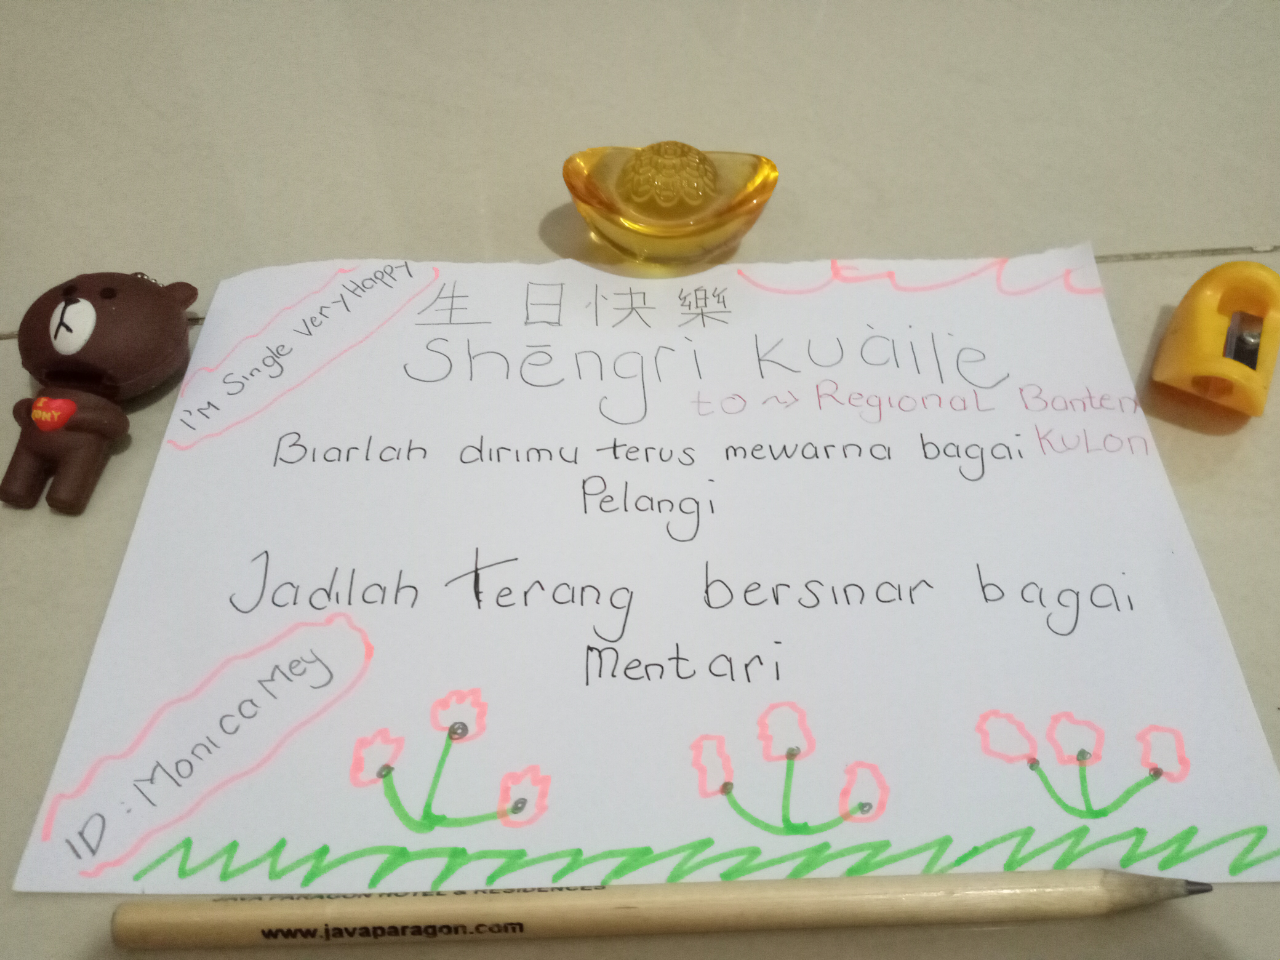 I'M Single very Happy
生日快樂
Shēngri kuàilè
to ~> Regional Banten
KULON
Biarlah dirimu terus mewarna bagai
Pelangi
Jadilah terang bersinar bagai
Mentari
ID : Monica Mey
JAVA PARAGON HOTEL & RESIDENCES
www.javaparagon.com